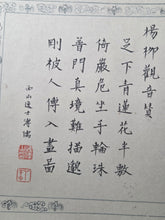 楊柳觀音贊
足下青蓮花半敷
倚巖危坐手輪珠
普門真境難描邈
剛被人傳入畫圖
西山逸士溥儒